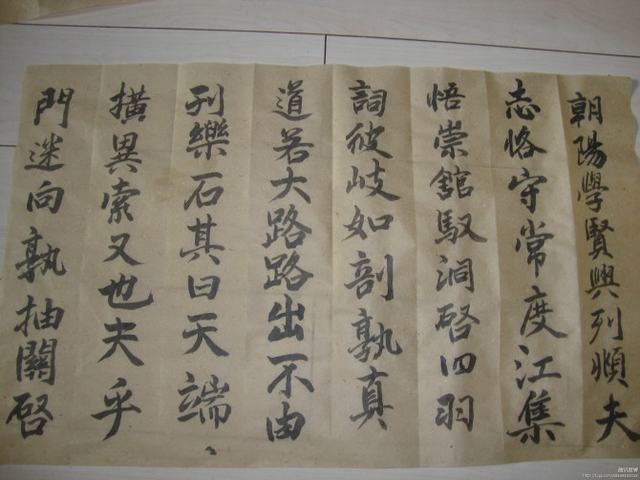 朝陽學賢興列順夫
志恪守常度江集
悟崇館馭洞啓四羽
詞彼岐如剖孰真
道若大路路出一不由
刊樂石其曰天端、
橫異索又也夫乎
門迷向孰抽關啓